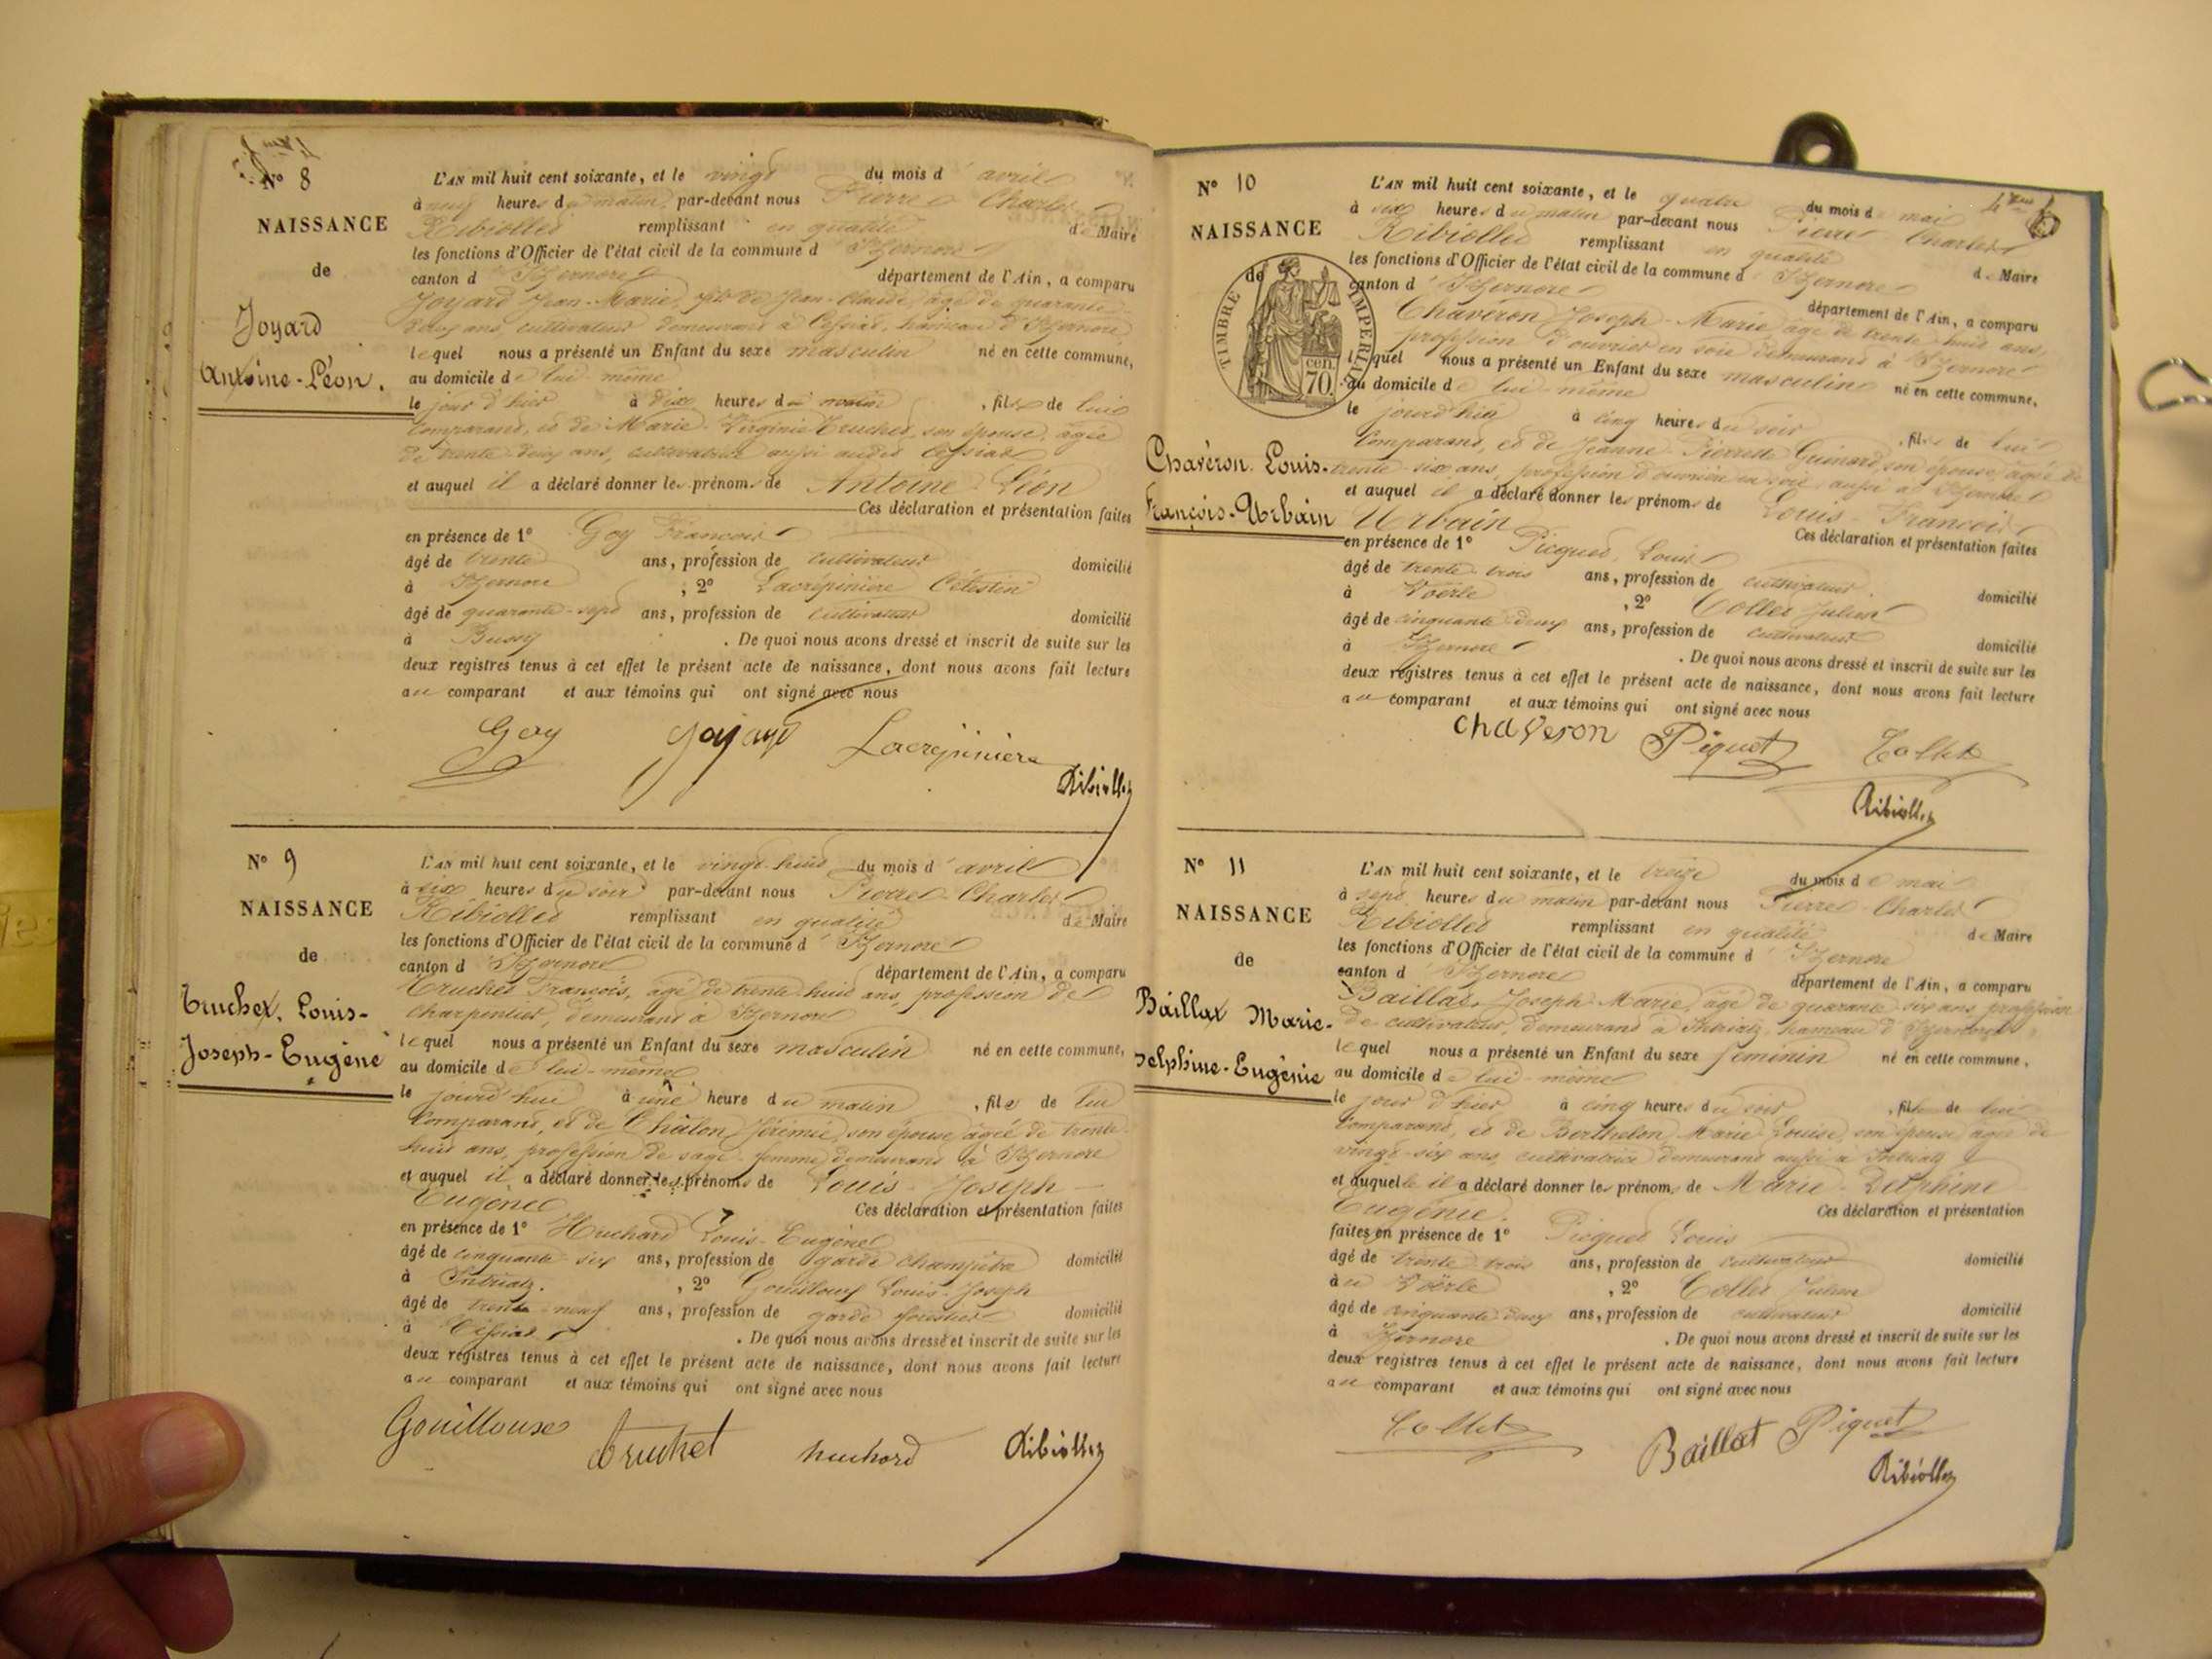 N° 8
NAISSANCE
de
Joyard
Antoine-Léon.
L'AN mil huit cent soixante, et le vingt du mois d'avril
à neuf heures du matin, par-devant nous Pierre Charles
Ribiollet remplissant en qualité de Maire
les fonctions d'Officier de l'état civil de la commune d'Izernore
canton d'Izernore département de l'Ain, a comparu
Joyard Jean-Marie, fils de Jean-Claude, âgé de quarante
deux ans, cultivateur demeurant à Cessiat, hameau d'Izernore
lequel nous a présenté un Enfant du sexe masculin né en cette commune,
au domicile de lui-même
le jour d'hier à dix heures du matin, fils de lui
Comparant, et de Marie-Virginie Truchet, son épouse, âgée
de trente deux ans, cultivatrice aussi audit Cessiat
et auquel il a déclaré donner les prénoms de Antoine Léon
Ces déclaration et présentation faites
en présence de 1° Goy François
âgé de trente ans, profession de cultivateur domicilié
à Izernore ; 2° Lacrépinière Célestin
âgé de quarante-sept ans, profession de cultivateur domicilié
à Bussy . De quoi nous avons dressé et inscrit de suite sur les
deux registres tenus à cet effet le présent acte de naissance, dont nous avons fait lecture
au comparant et aux témoins qui ont signé avec nous
Goy Joyard Lacrépinière
Ribiollet
N° 9
NAISSANCE
de
Truchet, Louis-
Joseph-Eugène
L'AN mil huit cent soixante, et le vingt-huit du mois d'avril
à six heures du soir par-devant nous Pierre-Charles
Ribiollet remplissant en qualité de Maire
les fonctions d'Officier de l'état civil de la commune d'Izernore
canton d'Izernore département de l'Ain, a comparu
Truchet François, âgé de trente huit ans, profession de
charpentier, demeurant à Izernore
lequel nous a présenté un Enfant du sexe masculin né en cette commune,
au domicile de lui-même
le jourd'hui à une heure du matin, fils de lui
Comparant, et de Chaton Jérémie, son épouse âgée de trente
huit ans, profession de sage-femme demeurant à Izernore
et auquel il a déclaré donner les prénoms de Louis-Joseph-
Eugène Ces déclaration et présentation faites
en présence de 1° Huchard Louis-Eugène
âgé de cinquante-six ans, profession de garde champêtre domicilié
à Intriatz. , 2° Gouilloux Louis-Joseph
âgé de trente-neuf ans, profession de garde forestier domicilié
à Cessiat . De quoi nous avons dressé et inscrit de suite sur les
deux registres tenus à cet effet le présent acte de naissance, dont nous avons fait lecture
au comparant et aux témoins qui ont signé avec nous
Gouilloux Truchet huchard Ribiollet
N° 10
NAISSANCE
de
TIMBRE IMPERIAL
cen.
70.
Chavéron. Louis-
François-Urbain
L'AN mil huit cent soixante, et le quatre du mois de mai
à six heures du matin par-devant nous Pierre Charles
Ribiollet remplissant en qualité de Maire
les fonctions d'Officier de l'état civil de la commune d'Izernore
canton d'Izernore département de l'Ain, a comparu
Chavéron Joseph-Marie âgé de trente-huit ans,
profession d'ouvrier en soie demeurant à Izernore
lequel nous a présenté un Enfant du sexe masculin né en cette commune,
au domicile de lui-même
le jour d'hier à cinq heures du soir, fils de lui
Comparant, et de Jeanne Pierrette Guinard son épouse, âgée de
trente-six ans, profession d'ouvrière en soie aussi à Izernore
et auquel il a déclaré donner les prénoms de Louis-François
Urbain Ces déclaration et présentation faites
en présence de 1° Picquet, Louis
âgé de trente-trois ans, profession de cultivateur domicilié
à Voërle , 2° Collet Julien
âgé de cinquante-deux ans, profession de cultivateur domicilié
à Izernore . De quoi nous avons dressé et inscrit de suite sur les
deux registres tenus à cet effet le présent acte de naissance, dont nous avons fait lecture
au comparant et aux témoins qui ont signé avec nous
Chaveron Piquet Collet
Ribiollet
N° 11
NAISSANCE
de
Baillat Marie-
Delphine-Eugénie
L'AN mil huit cent soixante, et le treize du mois de mai
à sept heures du matin par-devant nous Pierre-Charles
Ribiollet remplissant en qualité de Maire
les fonctions d'Officier de l'état civil de la commune d'Izernore
canton d'Izernore département de l'Ain, a comparu
Baillat, Joseph-Marie, âgé de quarante-six ans, profession
de cultivateur, demeurant à Intriatz, hameau d'Izernore
lequel nous a présenté un Enfant du sexe féminin né en cette commune,
au domicile de lui-même
le jour d'hier à cinq heures du soir, fille de lui
Comparant, et de Berthelon Marie-Louise, son épouse âgée de
vingt-six ans, cultivatrice demeurant aussi à Intriatz
et auquel le il a déclaré donner les prénoms de Marie-Delphine
Eugénie. Ces déclaration et présentation
faites en présence de 1° Picquet Louis
âgé de trente-trois ans, profession de cultivateur domicilié
au Voërle , 2° Collet Julien
âgé de cinquante-deux ans, profession de cultivateur domicilié
à Izernore . De quoi nous avons dressé et inscrit de suite sur les
deux registres tenus à cet effet le présent acte de naissance, dont nous avons fait lecture
au comparant et aux témoins qui ont signé avec nous
Collet Baillat Piquet
Ribiollet